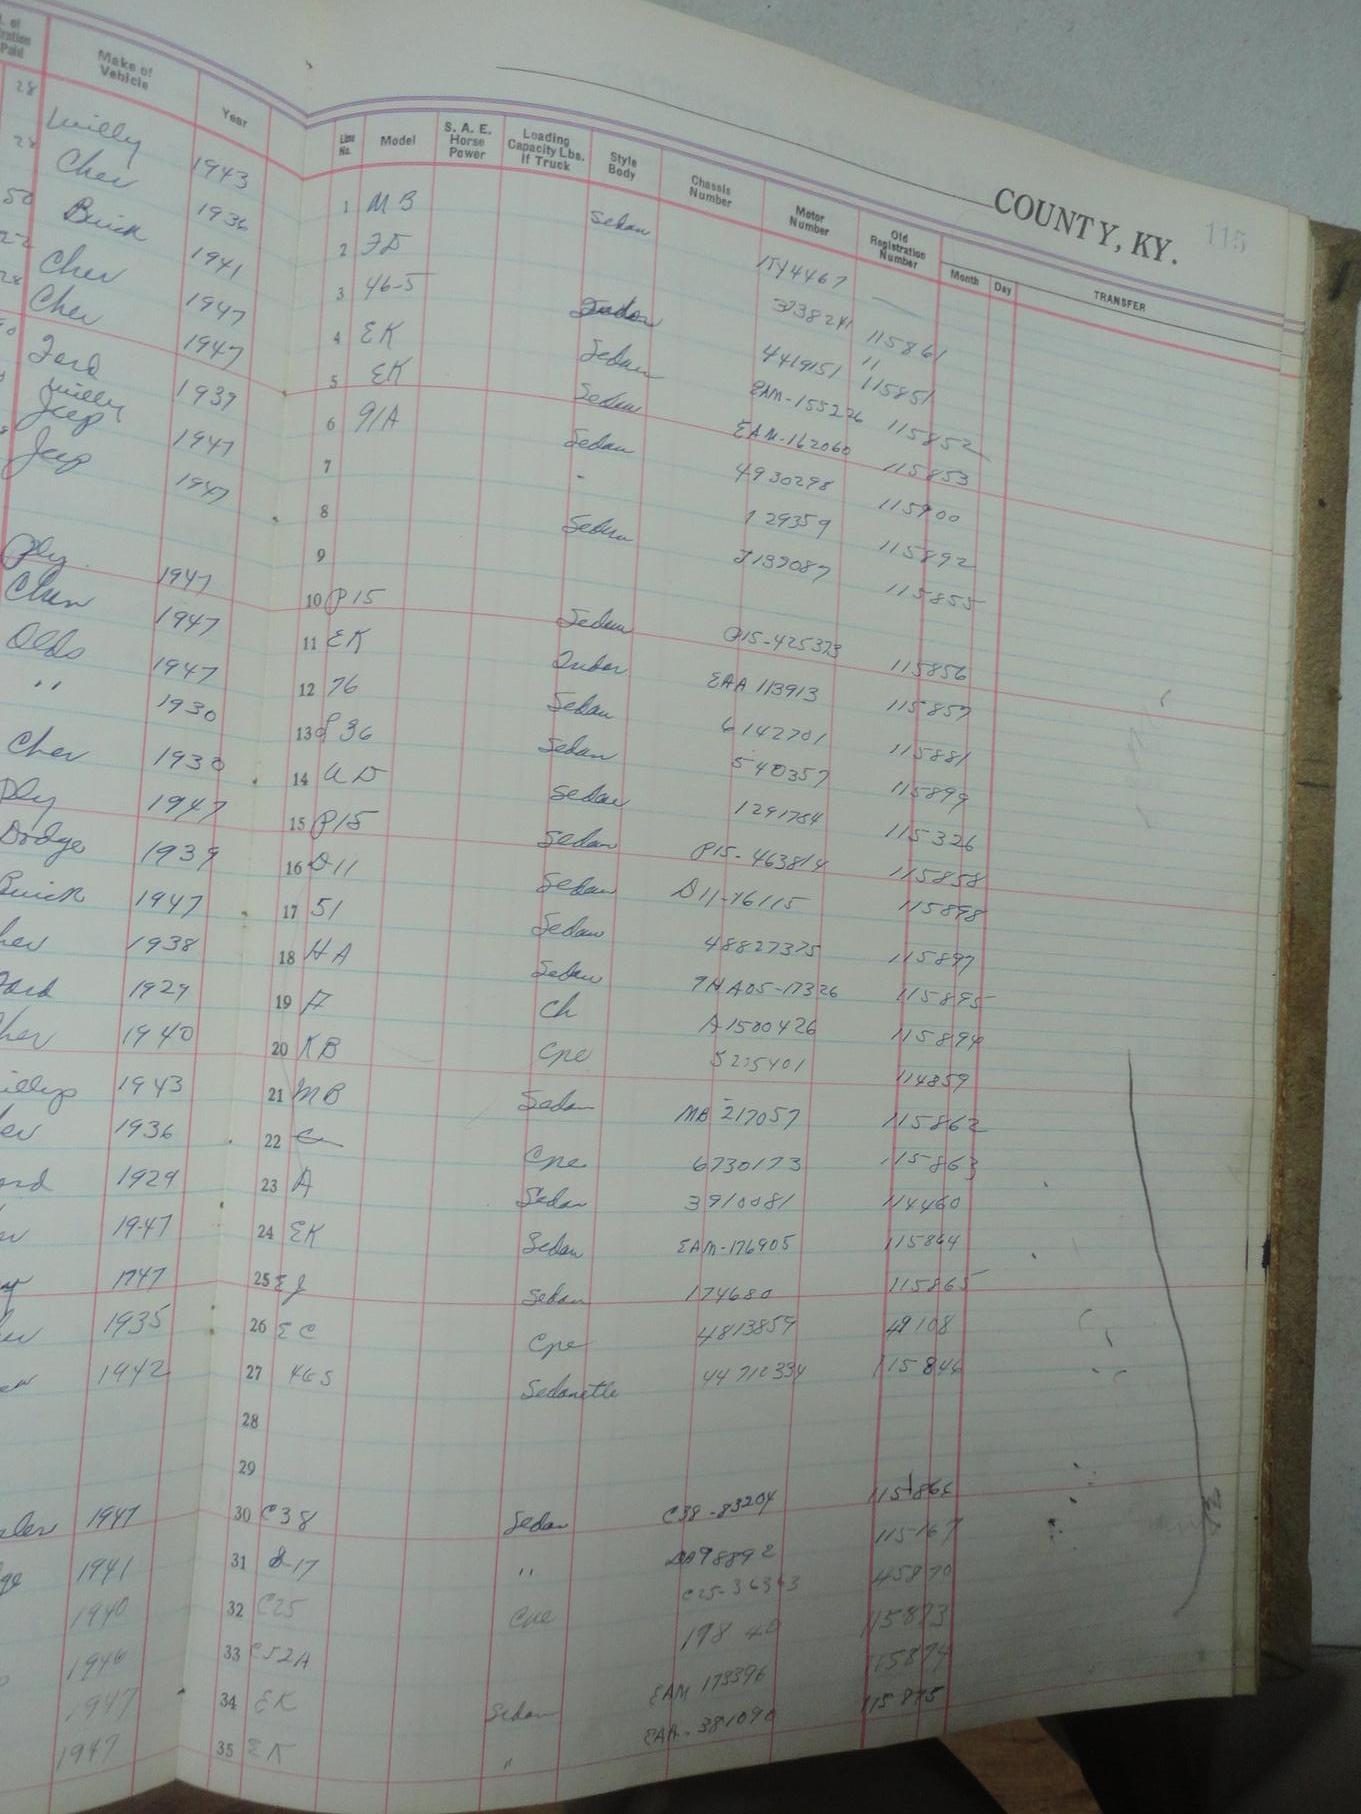 COUNTY, KY. 115
Make of Vehicle Year Line No. Model S. A. E. Horse Power Loading Capacity Lbs. If Truck Style Body Chassis Number Motor Number Old Registration Number Month Day TRANSFER
28 Willy 1943 1 MB Sedan
28 Chev 1936 2 FD 3738241 115861
50 Buick 1941 3 46-5 Sedan 4419151 115851
Chev 1947 4 EK Sedan EAM-155226 115852
Chev 1947 5 EK Sedan EAM-162060 115853
Ford 1939 6 91A Sedan 4930298 115900
Willy Jeep 1947 7 - 129359 115892
Jeep 1947 8 Sedan J137087 115855
9
Ply. 1947 10 P15 Sedan P15-425323 115856
Chev 1947 11 EK Tudor EAA 113913 115857
Olds 1947 12 76 Sedan 6142701 115881
" 1930 13 F36 Sedan 540357 115899
Chev 1930 14 UD Sedan 1291784 115326
Ply 1947 15 P15 Sedan P15-463814 115858
Dodge 1939 16 D11 Sedan D11-76115 115898
Buick 1947 17 51 Sedan 48827375 115897
1938 18 HA Sedan 9HA05-17326 115895
1929 19 A Ch A1500426 115894
1940 20 KB Cpe 5225401 114859
1943 21 MB Sedan MB-217057 115862
1936 22 Cpe 6730173 115863
1929 23 A Sedan 3910081 114460
1947 24 EK Sedan EAM-176905 115864
1947 25 EJ Sedan 174680 115865
1935 26 EC Cpe 4813859 49108
1942 27 46S Sedanette 44712334 115846
28
29
1947 30 C38 Sedan C38-83204 115866
1941 31 D-17 " 115167
1940 32 C25 Cpe C25-36343 45870
1946 33 C52A 198 40 115873
1947 34 EK Sedan EAM 173396 115874
1947 35 EK " EAA-381090 115875